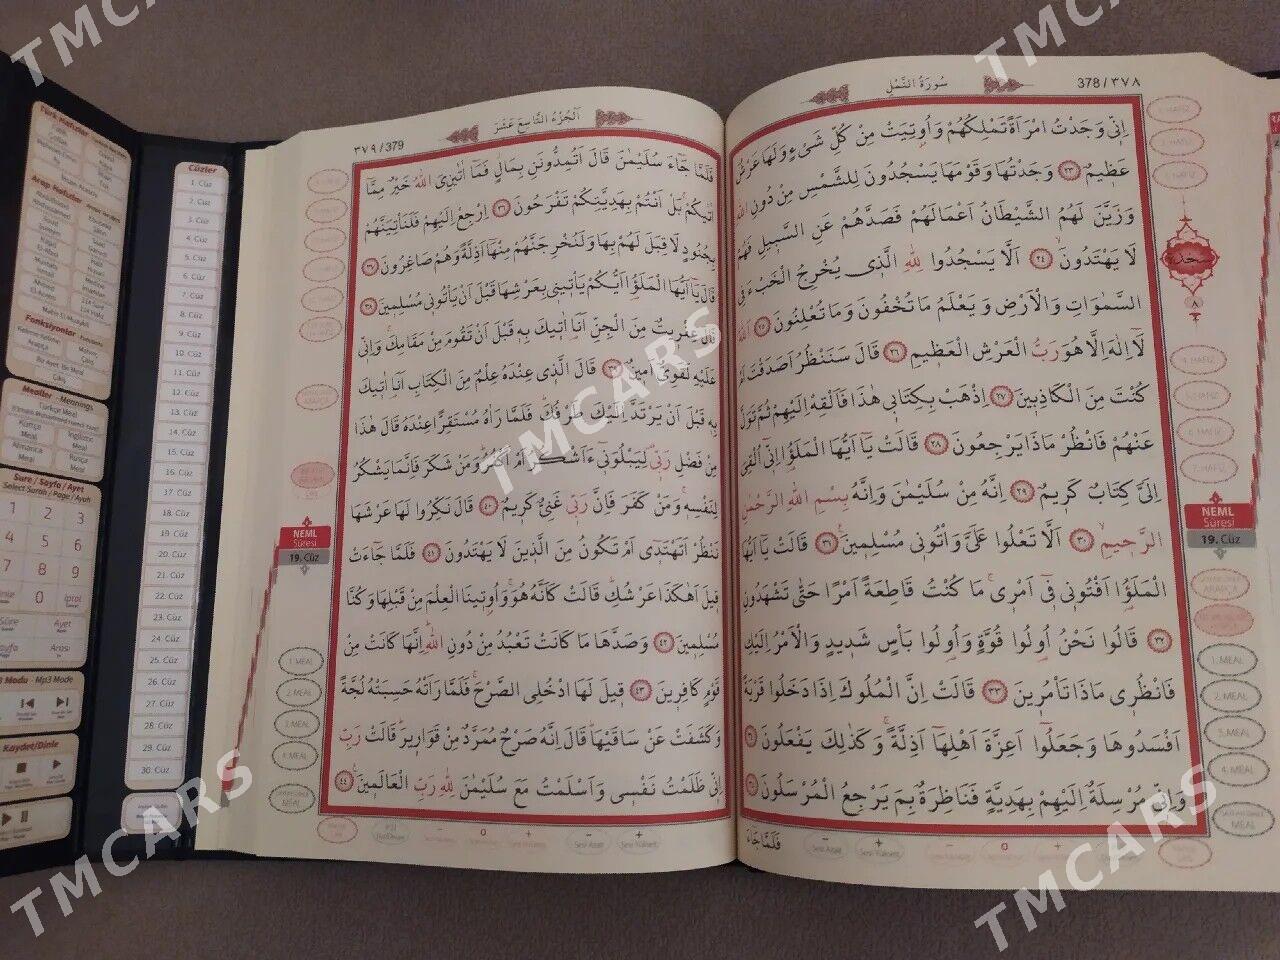 سُورَةُ النَّمْلِ
378 / ٣٧٨
اِنّ۪ي وَجَدْتُ امْرَاَةً تَمْلِكُهُمْ وَاُو۫تِيَتْ مِنْ كُلِّ شَيْءٍ وَلَهَا عَرْشٌ
عَظ۪يمٌ ﴿٢٣﴾ وَجَدْتُهَا وَقَوْمَهَا يَسْجُدُونَ لِلشَّمْسِ مِنْ دُونِ اللّٰهِ
وَزَيَّنَ لَهُمُ الشَّيْطَانُ اَعْمَالَهُمْ فَصَدَّهُمْ عَنِ السَّب۪يلِ فَهُمْ
لَا يَهْتَدُونَۙ ﴿٢٤﴾ اَلَّا يَسْجُدُوا لِلّٰهِ الَّذ۪ي يُخْرِجُ الْخَبْءَ فِي
السَّمٰوَاتِ وَالْاَرْضِ وَيَعْلَمُ مَا تُخْفُونَ وَمَا تُعْلِنُونَ ﴿٢٥﴾ اَللّٰهُ
لَٓا اِلٰهَ اِلَّا هُوَ رَبُّ الْعَرْشِ الْعَظ۪يمِ ﴿٢٦﴾ قَالَ سَنَنْظُرُ اَصَدَقْتَ اَمْ
كُنْتَ مِنَ الْكَاذِب۪ينَ ﴿٢٧﴾ اِذْهَبْ بِكِتَاب۪ي هٰذَا فَاَلْقِهْ اِلَيْهِمْ ثُمَّ تَوَلَّ
عَنْهُمْ فَانْظُرْ مَاذَا يَرْجِعُونَ ﴿٢٨﴾ قَالَتْ يَٓا اَيُّهَا الْمَلَؤُ۬ا اِنّ۪ٓي اُلْقِيَ
اِلَيَّ كِتَابٌ كَر۪يمٌ ﴿٢٩﴾ اِنَّهُ مِنْ سُلَيْمٰنَ وَاِنَّهُ بِسْمِ اللّٰهِ الرَّحْمٰنِ
الرَّح۪يمِۙ ﴿٣٠﴾ اَلَّا تَعْلُوا عَلَيَّ وَأْتُون۪ي مُسْلِم۪ينَ۟ ﴿٣١﴾ قَالَتْ يَٓا اَيُّهَا
الْمَلَؤُ۬ا اَفْتُون۪ي ف۪ٓي اَمْر۪يۚ مَا كُنْتُ قَاطِعَةً اَمْرًا حَتّٰى تَشْهَدُونِ
﴿٣٢﴾ قَالُوا نَحْنُ اُو۬لُوا قُوَّةٍ وَاُو۬لُوا بَأْسٍ شَد۪يدٍ وَالْاَمْرُ اِلَيْكِ
فَانْظُر۪ي مَاذَا تَأْمُر۪ينَ ﴿٣٣﴾ قَالَتْ اِنَّ الْمُلُوكَ اِذَا دَخَلُوا قَرْيَةً
اَفْسَدُوهَا وَجَعَلُٓوا اَعِزَّةَ اَهْلِهَٓا اَذِلَّةًۚ وَكَذٰلِكَ يَفْعَلُونَ ﴿٣٤﴾
وَاِنّ۪ي مُرْسِلَةٌ اِلَيْهِمْ بِهَدِيَّةٍ فَنَاظِرَةٌ بِمَ يَرْجِعُ الْمُرْسَلُونَ ﴿٣٥﴾
فَلَمَّا جَٓاءَ
سجدة
٨
NEML
Sûresi
19. Cüz
1. MEAL
2. MEAL
3. MEAL
4. MEAL
MEAL
اَلْجُزْءُ التَّاسِعَ عَشَرَ
٣٧٩ / 379
فَلَمَّا جَٓاءَ سُلَيْمٰنَ قَالَ اَتُمِدُّونَنِ بِمَالٍ فَمَٓا اٰتٰينِ‌يَ اللّٰهُ خَيْرٌ مِمَّٓا
اٰتٰيكُمْۚ بَلْ اَنْتُمْ بِهَدِيَّتِكُمْ تَفْرَحُونَ ﴿٣٦﴾ اِرْجِعْ اِلَيْهِمْ فَلَنَأْتِيَنَّهُمْ
بِجُنُودٍ لَا قِبَلَ لَهُمْ بِهَا وَلَنُخْرِجَنَّهُمْ مِنْهَٓا اَذِلَّةً وَهُمْ صَاغِرُونَ ﴿٣٧﴾
قَالَ يَٓا اَيُّهَا الْمَلَؤُ۬ا اَيُّكُمْ يَأْت۪ين۪ي بِعَرْشِهَا قَبْلَ اَنْ يَأْتُون۪ي مُسْلِم۪ينَ ﴿٣٨﴾
قَالَ عِفْر۪يتٌ مِنَ الْجِنِّ اَنَا۬ اٰت۪يكَ بِه۪ قَبْلَ اَنْ تَقُومَ مِنْ مَقَامِكَۚ وَاِنّ۪ي
عَلَيْهِ لَقَوِيٌّ اَم۪ينٌ ﴿٣٩﴾ قَالَ الَّذ۪ي عِنْدَهُ عِلْمٌ مِنَ الْكِتَابِ اَنَا۬ اٰت۪يكَ
بِه۪ قَبْلَ اَنْ يَرْتَدَّ اِلَيْكَ طَرْفُكَۜ فَلَمَّا رَاٰهُ مُسْتَقِرًّا عِنْدَهُ قَالَ هٰذَا
مِنْ فَضْلِ رَبّ۪ي۠ لِيَبْلُوَن۪ٓي ءَاَشْكُرُ اَمْ اَكْفُرُۜ وَمَنْ شَكَرَ فَاِنَّمَا يَشْكُرُ
لِنَفْسِه۪ۚ وَمَنْ كَفَرَ فَاِنَّ رَبّ۪ي غَنِيٌّ كَر۪يمٌ ﴿٤٠﴾ قَالَ نَكِّرُوا لَهَا عَرْشَهَا
نَنْظُرْ اَتَهْتَد۪ٓي اَمْ تَكُونُ مِنَ الَّذ۪ينَ لَا يَهْتَدُونَ ﴿٤١﴾ فَلَمَّا جَٓاءَتْ
ق۪يلَ اَهٰكَذَا عَرْشُكِۜ قَالَتْ كَاَنَّهُ هُوَۚ وَاُو۫ت۪ينَا الْعِلْمَ مِنْ قَبْلِهَا وَكُنَّا
مُسْلِم۪ينَ ﴿٤٢﴾ وَصَدَّهَا مَا كَانَتْ تَعْبُدُ مِنْ دُونِ اللّٰهِۜ اِنَّهَا كَانَتْ مِنْ
قَوْمٍ كَافِر۪ينَ ﴿٤٣﴾ ق۪يلَ لَهَا ادْخُلِي الصَّرْحَۚ فَلَمَّا رَاَتْهُ حَسِبَتْهُ لُجَّةً
وَكَشَفَتْ عَنْ سَاقَيْهَاۜ قَالَ اِنَّهُ صَرْحٌ مُمَرَّدٌ مِنْ قَوَار۪يرَۜ قَالَتْ رَبِّ
اِنّ۪ي ظَلَمْتُ نَفْس۪ي وَاَسْلَمْتُ مَعَ سُلَيْمٰنَ لِلّٰهِ رَبِّ الْعَالَم۪ينَ۟ ﴿٤٤﴾
NEML
Sûresi
19. Cüz
1. MEAL
2. MEAL
3. MEAL
4. MEAL
MEAL
Cüzler
1. Cüz
2. Cüz
3. Cüz
4. Cüz
5. Cüz
6. Cüz
7. Cüz
8. Cüz
9. Cüz
10. Cüz
11. Cüz
12. Cüz
13. Cüz
14. Cüz
15. Cüz
16. Cüz
17. Cüz
18. Cüz
19. Cüz
20. Cüz
21. Cüz
22. Cüz
23. Cüz
24. Cüz
25. Cüz
26. Cüz
27. Cüz
28. Cüz
29. Cüz
30. Cüz
Türk Hafızlar
Arap Hafızlar
Fonksiyonlar
Mealler - Meanings
Sure / Sayfa / Ayet
Select Surah / Page / Ayah
1 2 3
4 5 6
7 8 9
0 İptal
Modu - Mp3 Mode
Kaydet/Dinle
TMCARS
TMCARS
TMCARS
TMCARS
TMCARS
TMCARS